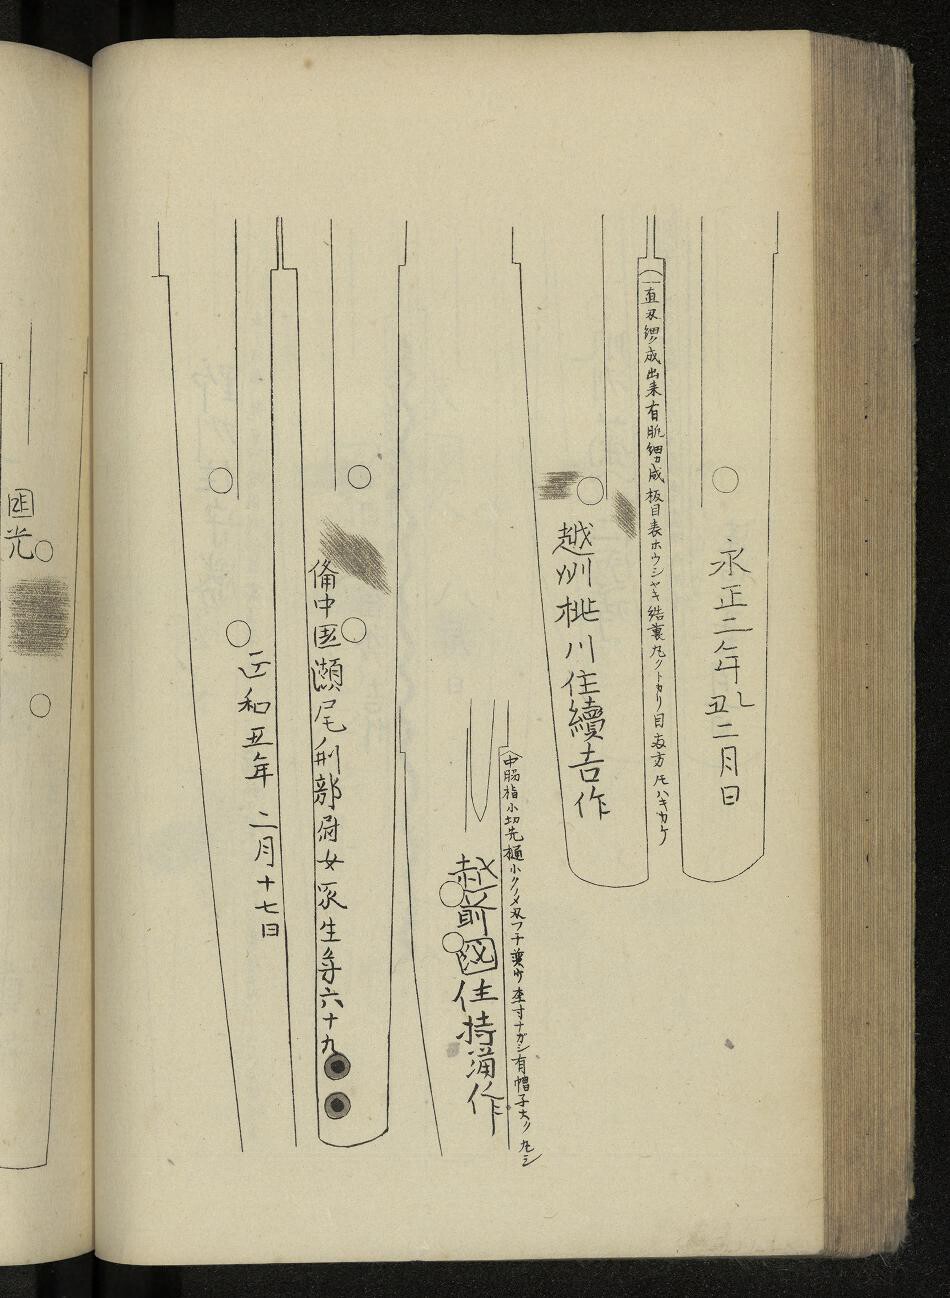 永正二年乙丑二月日
一直刃細ク成出来有肌細成板目表ホウシヤキ結裏丸クトカリ目表方ハキカケ
越州桃川住續吉作
中脇指小切先樋小クノメ刃フチ
有帽子大ク丸シ
越前国住持
作
備中国瀬尾刑部尉女家生年六十九
正和五年二月十七日
国光